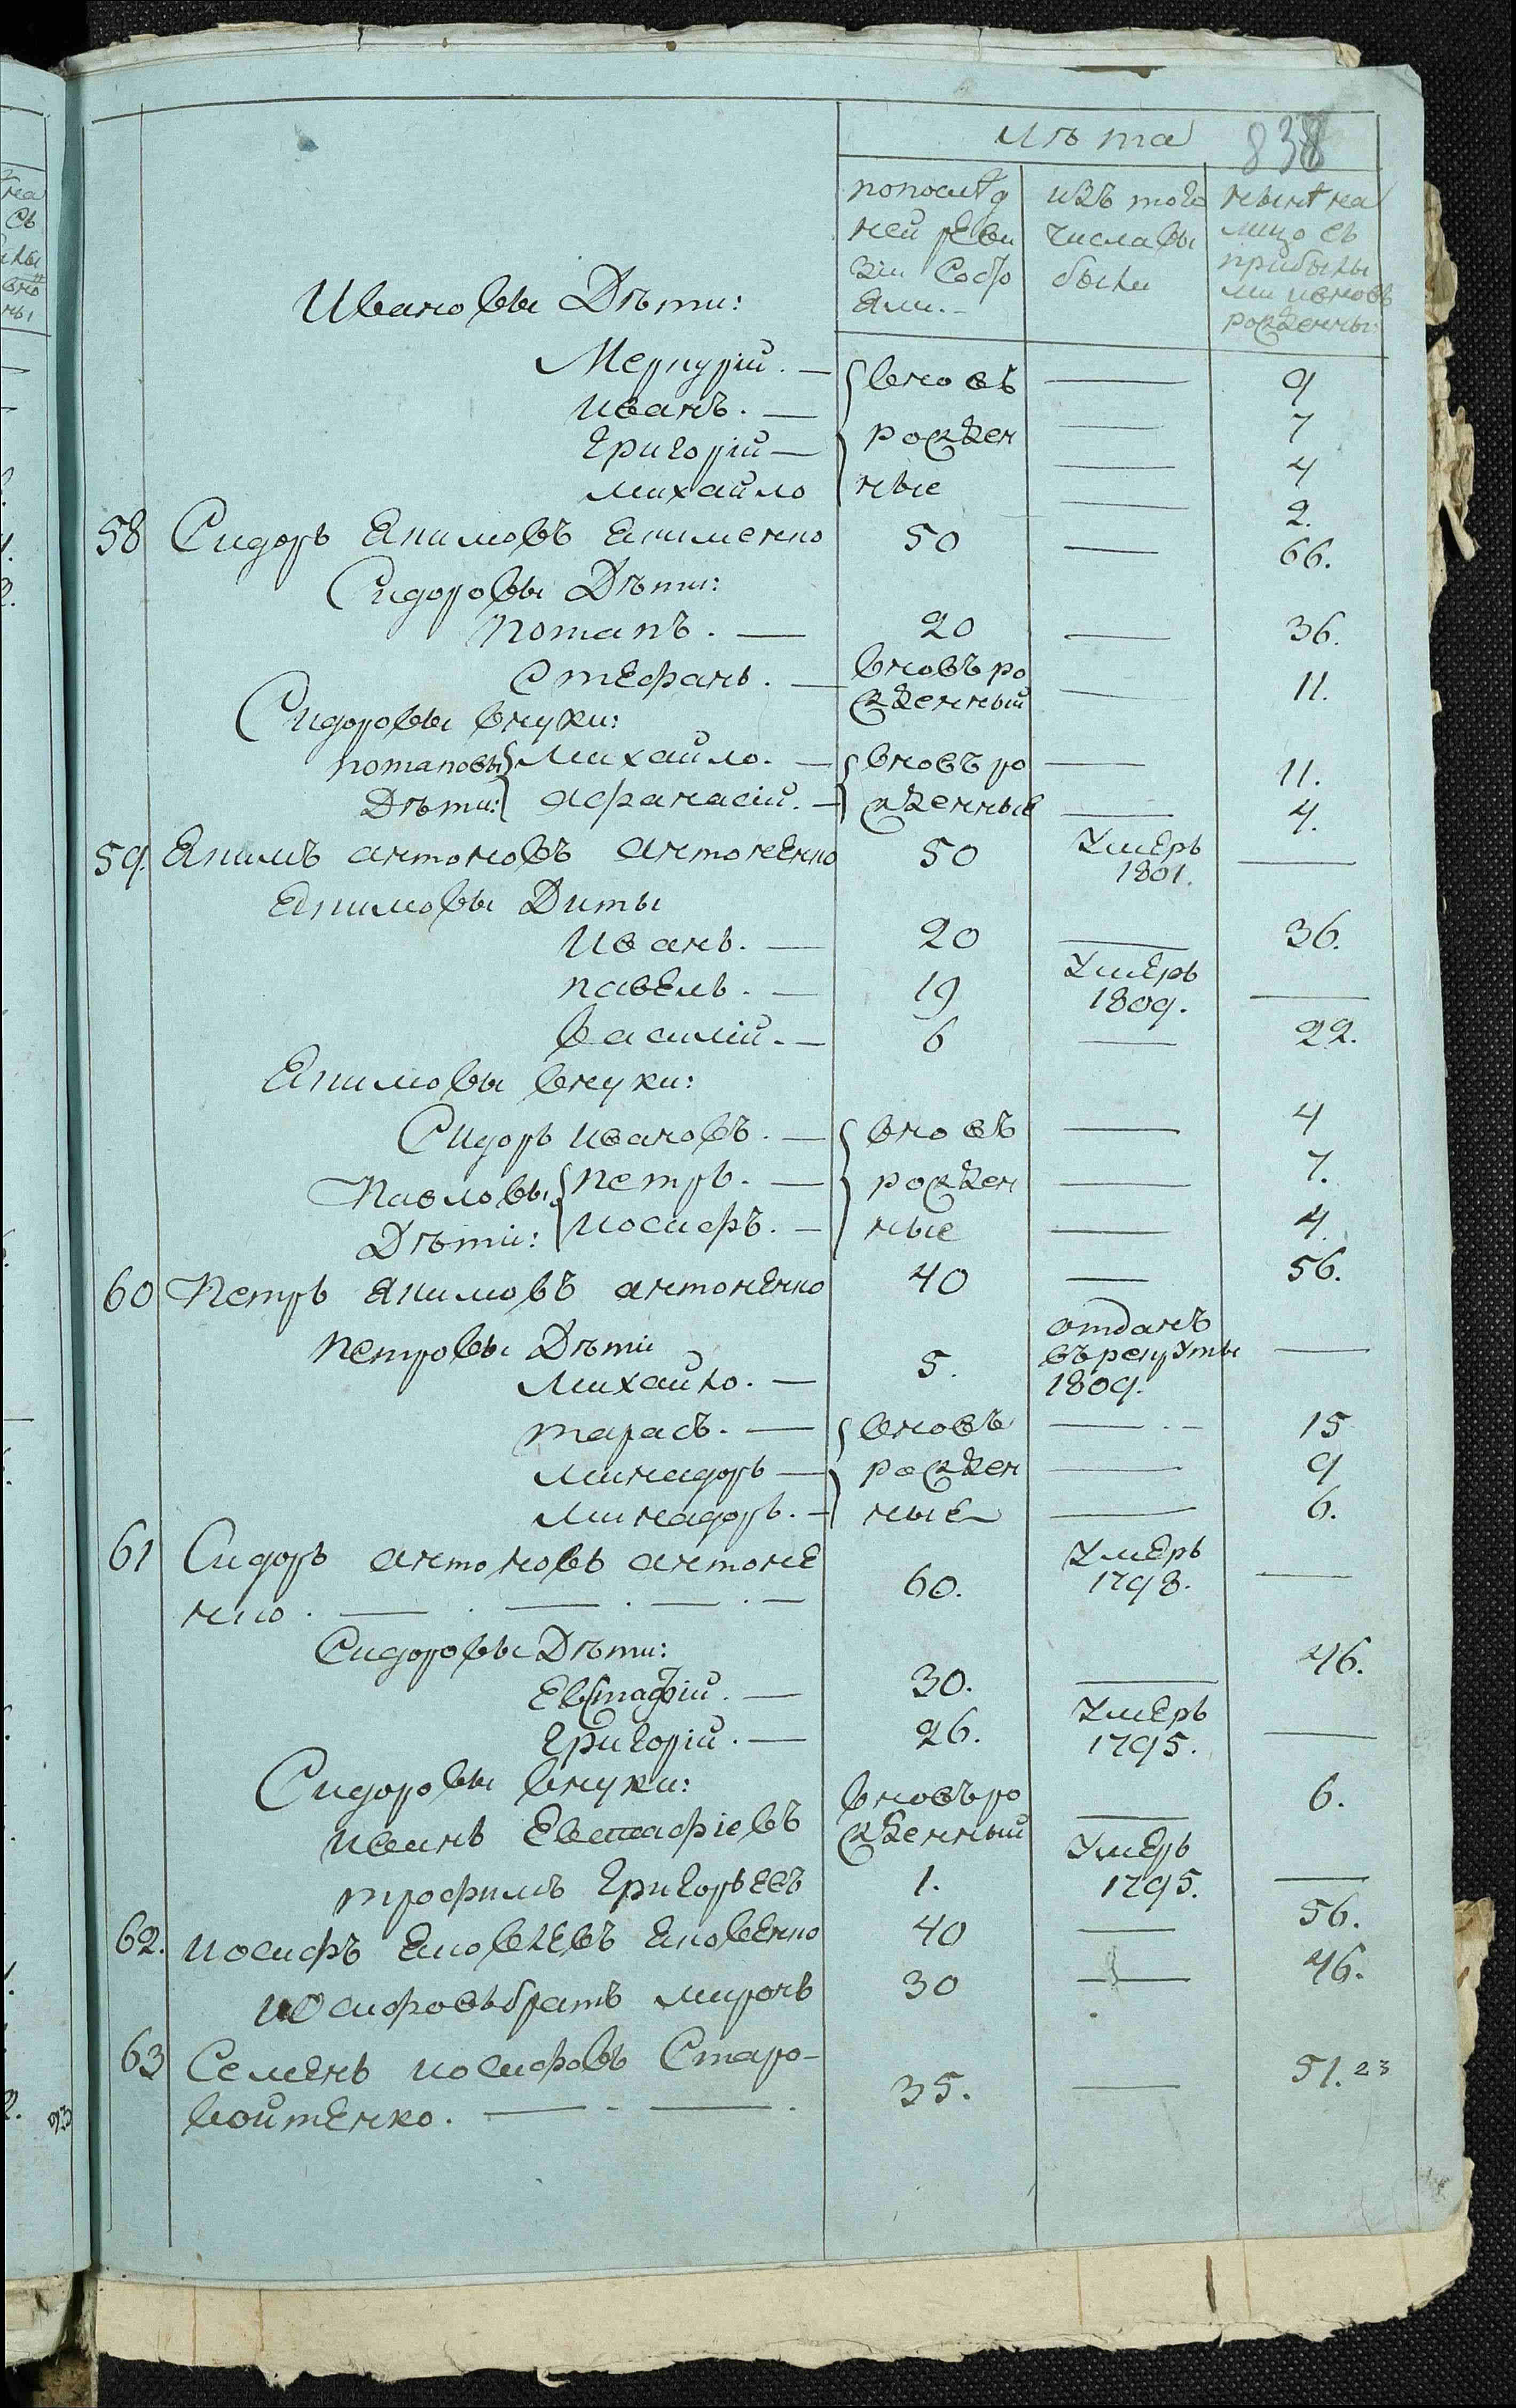 лѣта 838
попослѣд
ней реви
зіи Состо
яли.
изъ того
числа вы
были
нынѣ на
лицо съ
прибылы
ми ивновь
рожденны:
Ивановы Дѣти:
Меркурій. — вновь — 9
иванъ. — — 7
Григорій — рожден — 4
михайло ные — 2.
58 Сидоръ Якимовъ Якименко 50 — 66.
Сидоровы Дѣти:
потапъ. — 20 — 36.
Стефанъ. — вновь ро
жденный — 11.
Сидоровы внуки:
потаповы Михайло. — вновь ро — 11.
Дѣти: афанасій. — жденные — 4.
59. Якимъ антоновъ антоненко 50 Умеръ
1801. —
Якимовы Диты
Иванъ. — 20 — 36.
павелъ. — 19 Умеръ
1809. —
василій. — 6 — 22.
Якимовы внуки:
Сидоръ ивановъ. — вновь — 4
Павловы петръ. — рожден — 7.
Дѣти: иосифъ. — ные — 4.
60 Петръ Якимовъ антоненко 40 — 56.
петровы Дѣти
Михайло. — 5. отданъ
въ рекруты
1809. —
тарасъ. — вновь — 15
миnадоръ — рожден — 9
минадоръ. — ные — 6.
61 Сидоръ антоновъ антоне
нко. — . — . — . — 60. Умеръ
1798. —
Сидоровы Дѣти:
Евстафій. — 30. — 46.
Григорій. — 26. Умеръ
1795. —
Сидоровы внуки:
иванъ Евстафіевъ вновь ро
жденный — 6.
трофимъ Григорьевъ 1. Умеръ
1795. —
62. иосифъ Яковлевъ Яковенко 40 — 56.
иосифовъ братъ миронъ 30 — 46.
63 Семенъ иосифовъ Старо-
войтенко. — . — . 35. — 51. 23